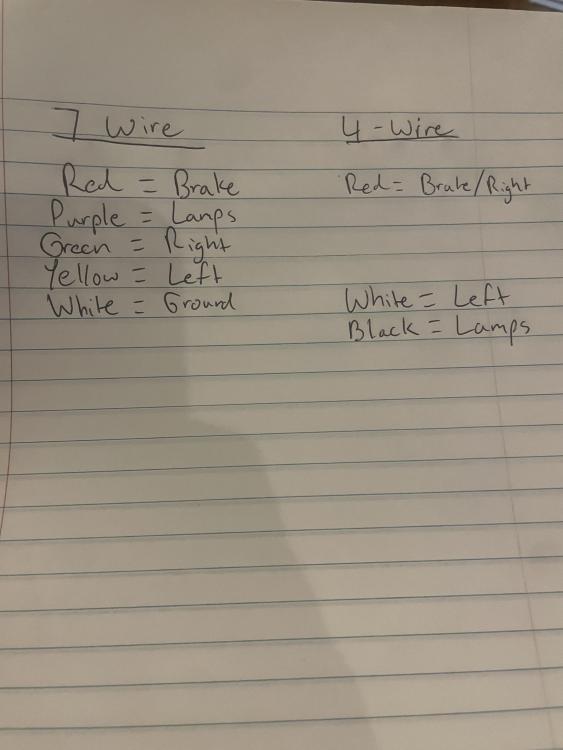 7 Wire
Red = Brake
Purple = Lamps
Green = Right
Yellow = Left
White = Ground
4-Wire
Red = Brake/Right
White = Left
Black = Lamps